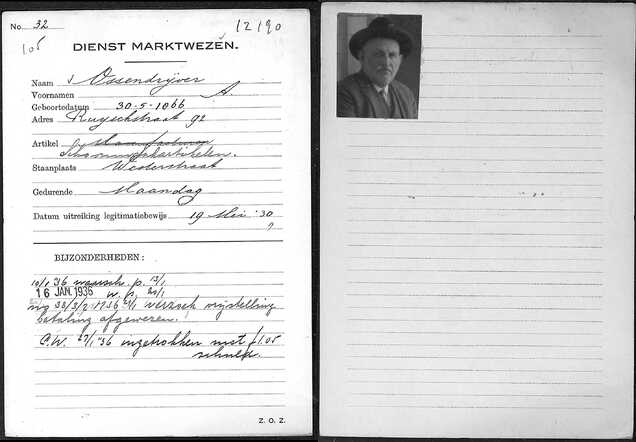 No. 32
12190
105
DIENST MARKTWEZEN.
Naam Ossendrijver
Voornamen A.
Geboortedatum 30-5-1866
Adres Ruyschstraat 92
Artikel
Schoonmaakartikelen.
Staanplaats Westerstraat
Gedurende Maandag
Datum uitreiking legitimatiebewijs 19 Mei '30
BIJZONDERHEDEN:
10/1 '36 waarsch. p. 13/1
16 JAN. 1936 w. p. 20/1
1936 verzoek vrijstelling
betaling afgewezen.
C.W. 27/1 '36 ingetrokken met f 1.05
schuld.
Z. O. Z.